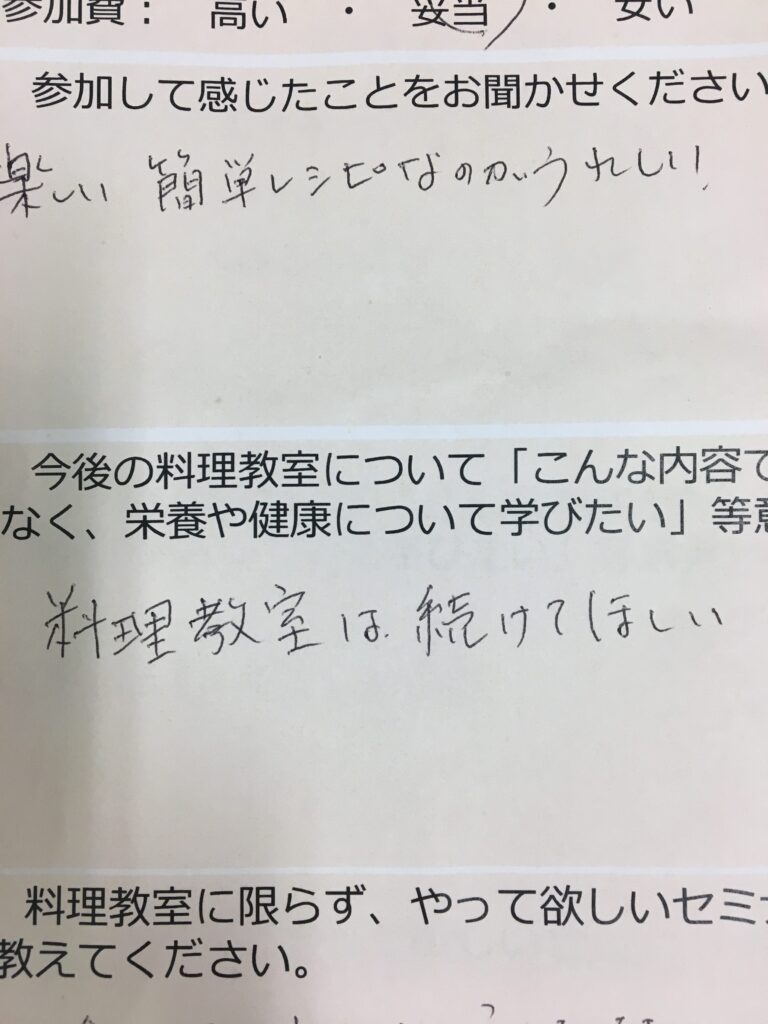 参加費： 高い ・ 妥当 ・ 安い
参加して感じたことをお聞かせください
楽しい 簡単レシピなのがうれしい!
今後の料理教室について「こんな内容で
なく、栄養や健康について学びたい」等意
料理教室は続けてほしい
料理教室に限らず、やって欲しいセミナ
教えてください。